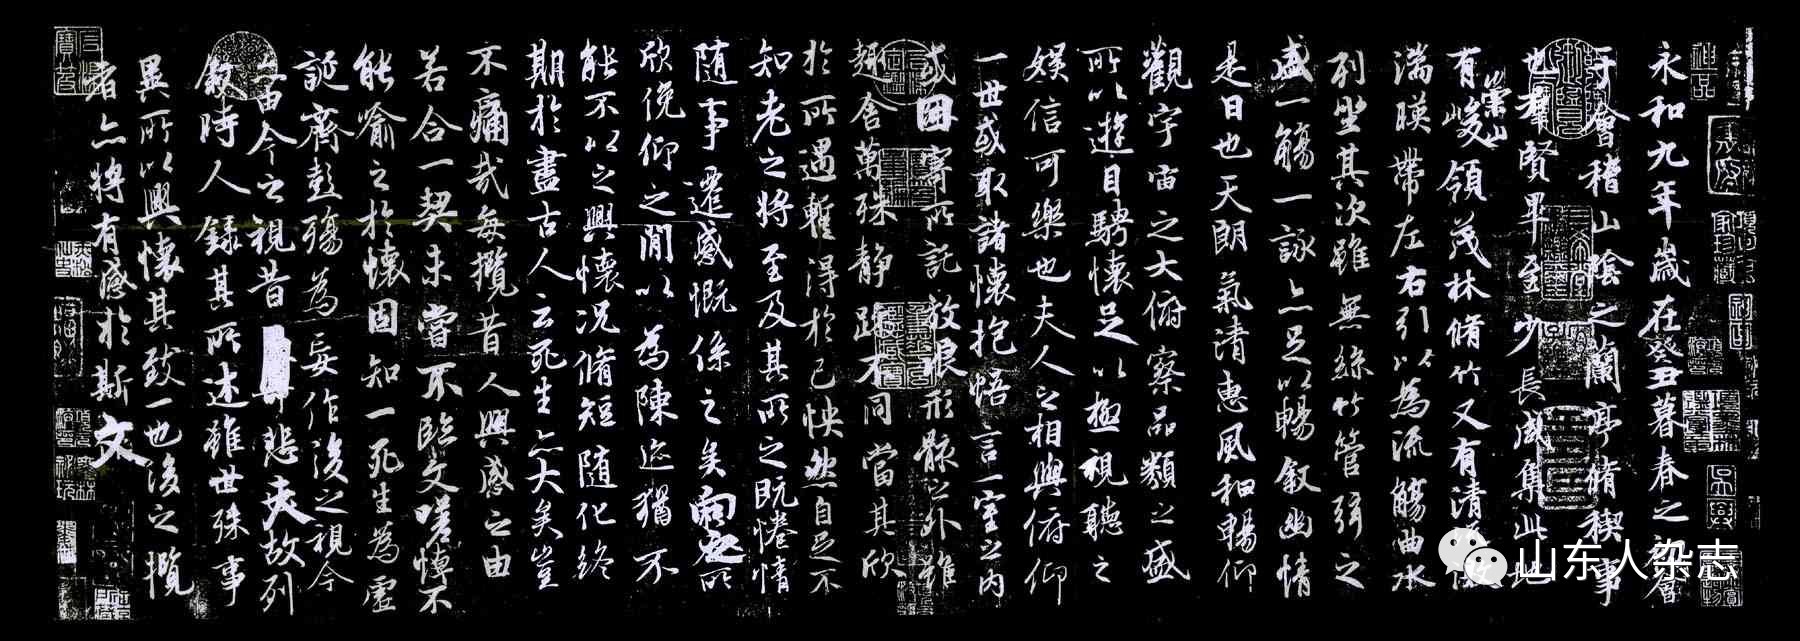 永和九年歲在癸丑暮春之初會
于會稽山陰之蘭亭脩禊事
也群賢畢至少長咸集此地
有崇山峻領茂林脩竹又有清
湍暎帶左右引以為流觴曲水
列坐其次雖無絲竹管弦之
盛一觴一詠亦足以暢敘幽情
是日也天朗氣清惠風和暢仰
觀宇宙之大俯察品類之盛
所以遊目騁懷足以極視聽之
娛信可樂也夫人之相與俯仰
一世或取諸懷抱悟言一室之內
或因寄所託放浪形骸之外雖
趣舍萬殊靜躁不同當其欣
於所遇蹔得於己怏然自足不
知老之將至及其所之既惓情
隨事遷感慨係之矣向之所
欣俛仰之閒以為陳迹猶不
能不以之興懷況脩短隨化終
期於盡古人云死生亦大矣豈
不痛哉每攬昔人興感之由
若合一契未嘗不臨文嗟悼不
能喻之於懷固知一死生為虛
誕齊彭殤為妄作後之視今
亦由今之視昔悲夫故列
敘時人錄其所述雖世殊事
異所以興懷其致一也後之攬
者亦將有感於斯文
山东人杂志